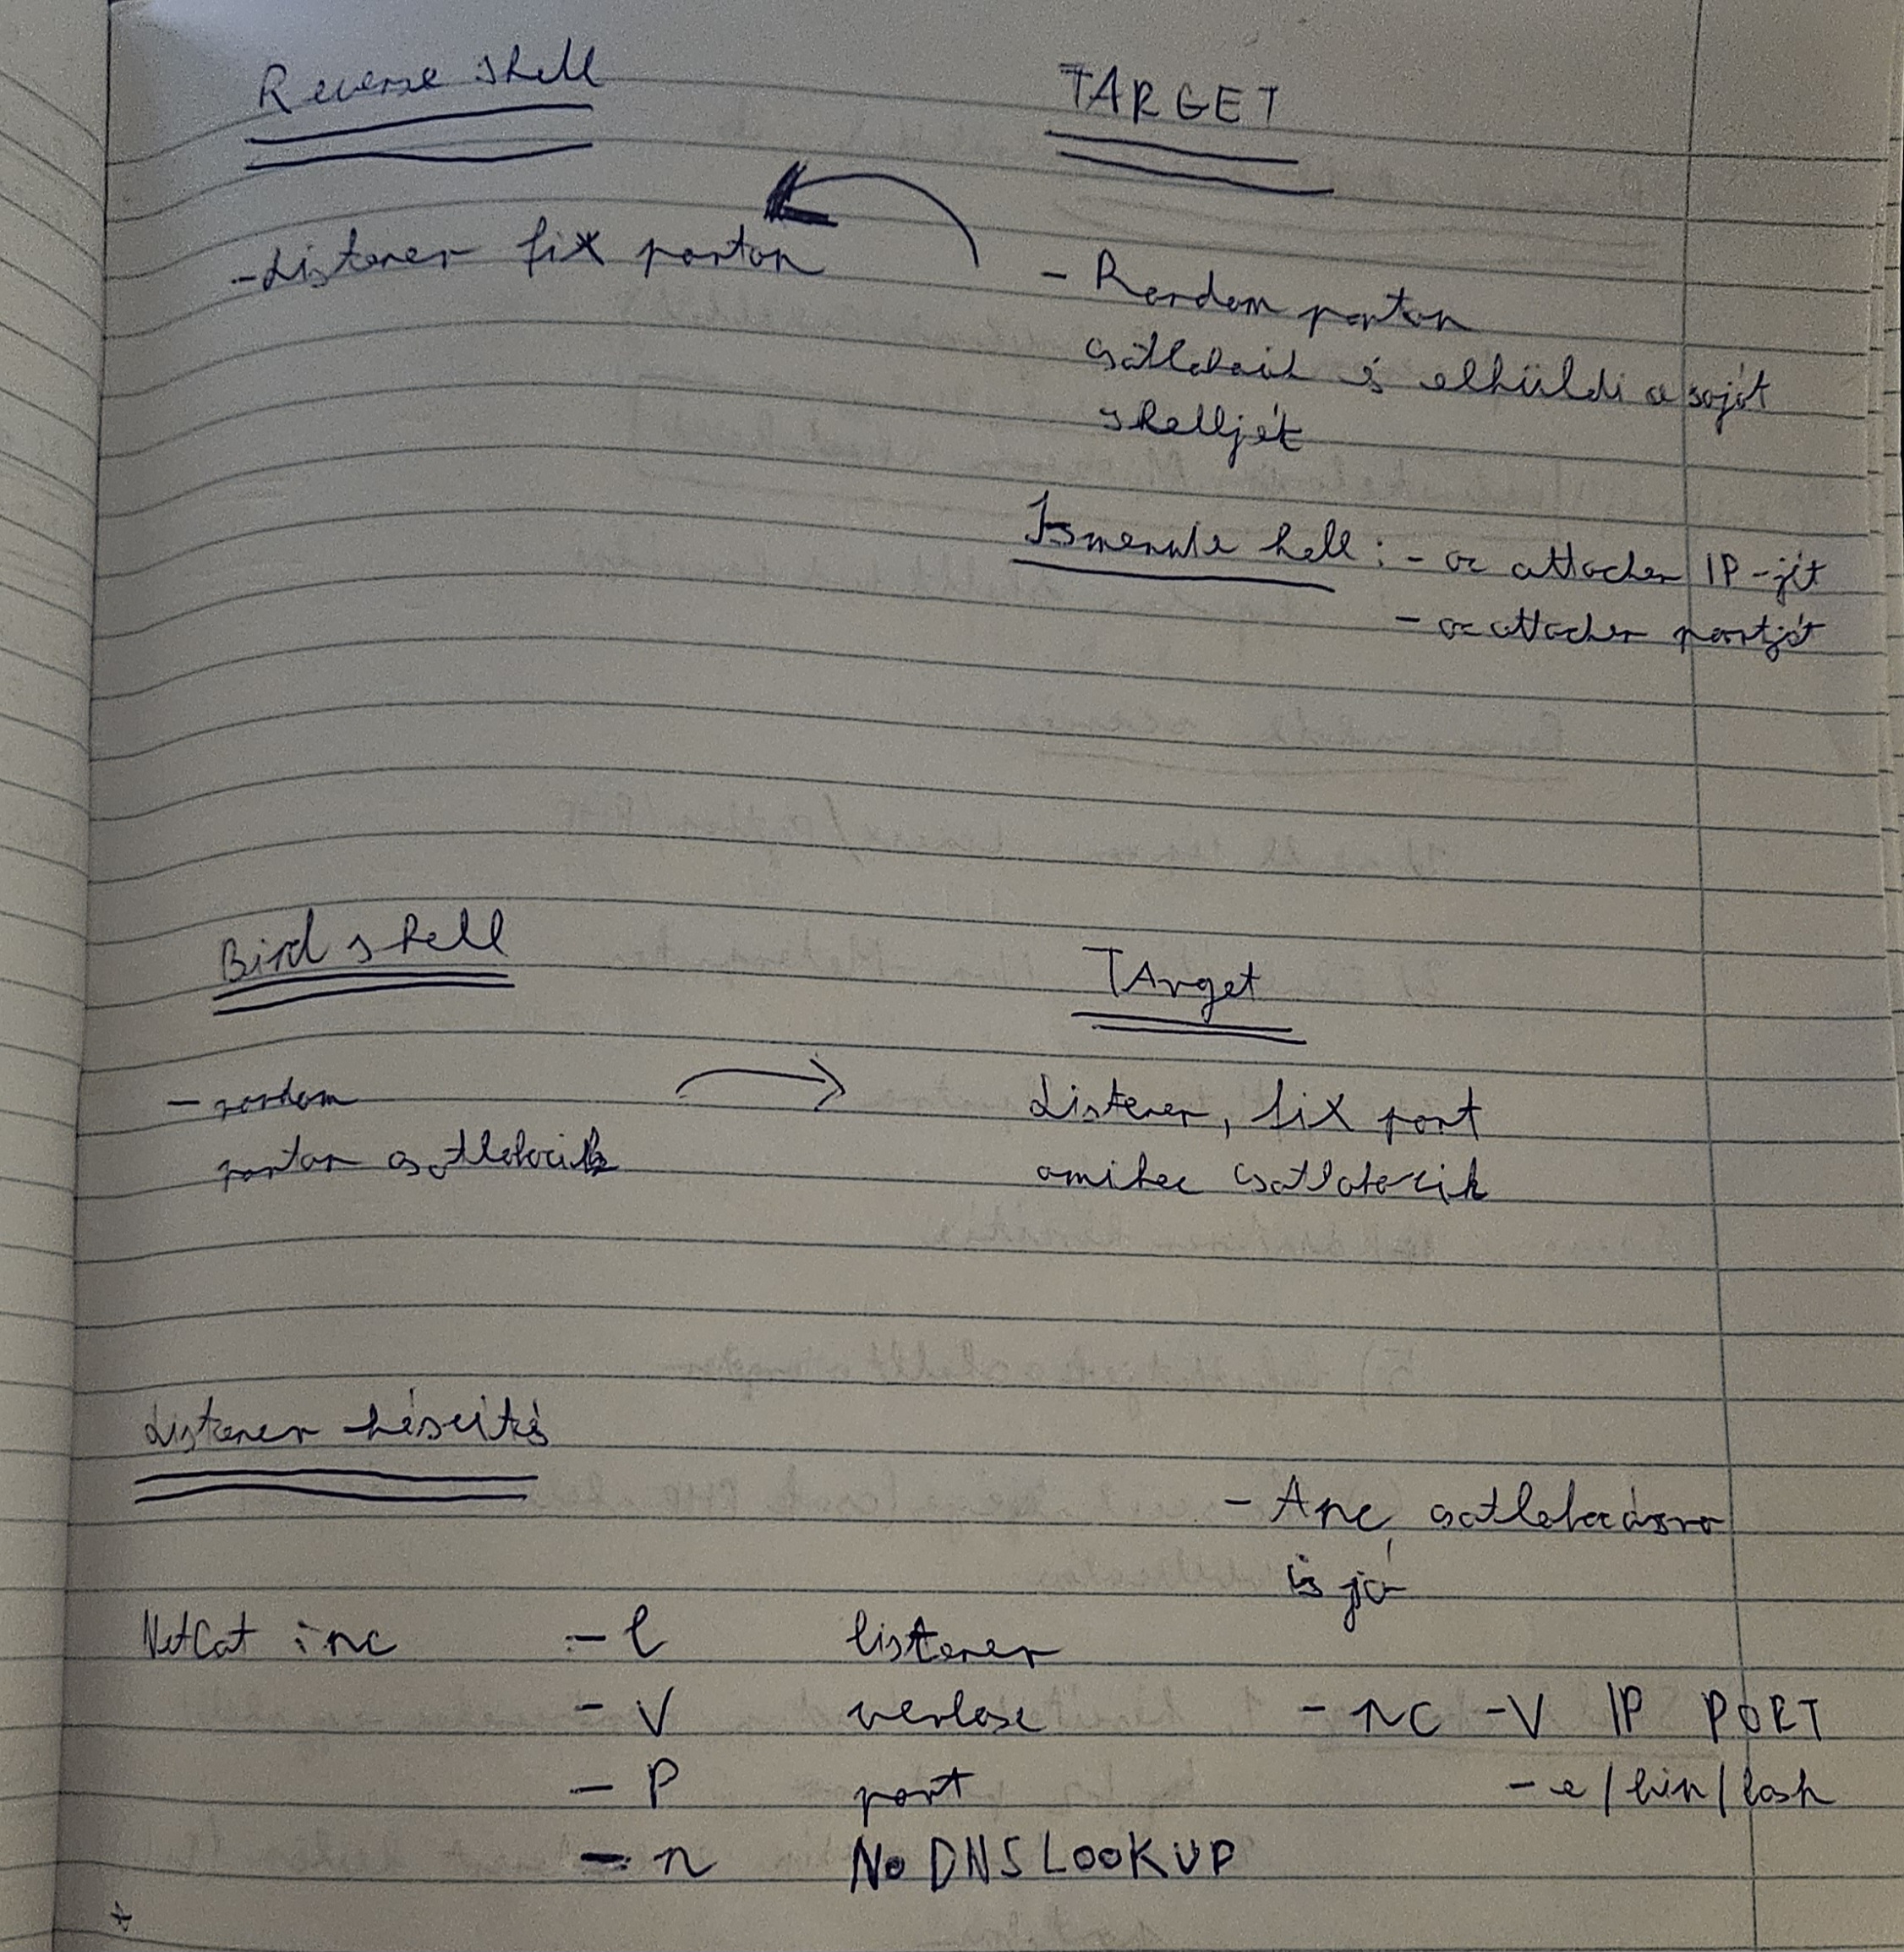 Reverse shell
TARGET
- Listener fix porton
- Random porton
csatlakozik és elküldi a saját
shelljét
Ismernie kell : - az attacker IP-jét
- az attacker portját
Bind shell
TArget
- random
porton csatlakozik
Listener, fix port
amihez csatlakozik
Listener készítés
- A nc csatlakozásra
is jó
NetCat : nc - l listener
- V verbose
- nc -V IP PORT
- P port
- e /bin/bash
- n No DNS LOOKUP